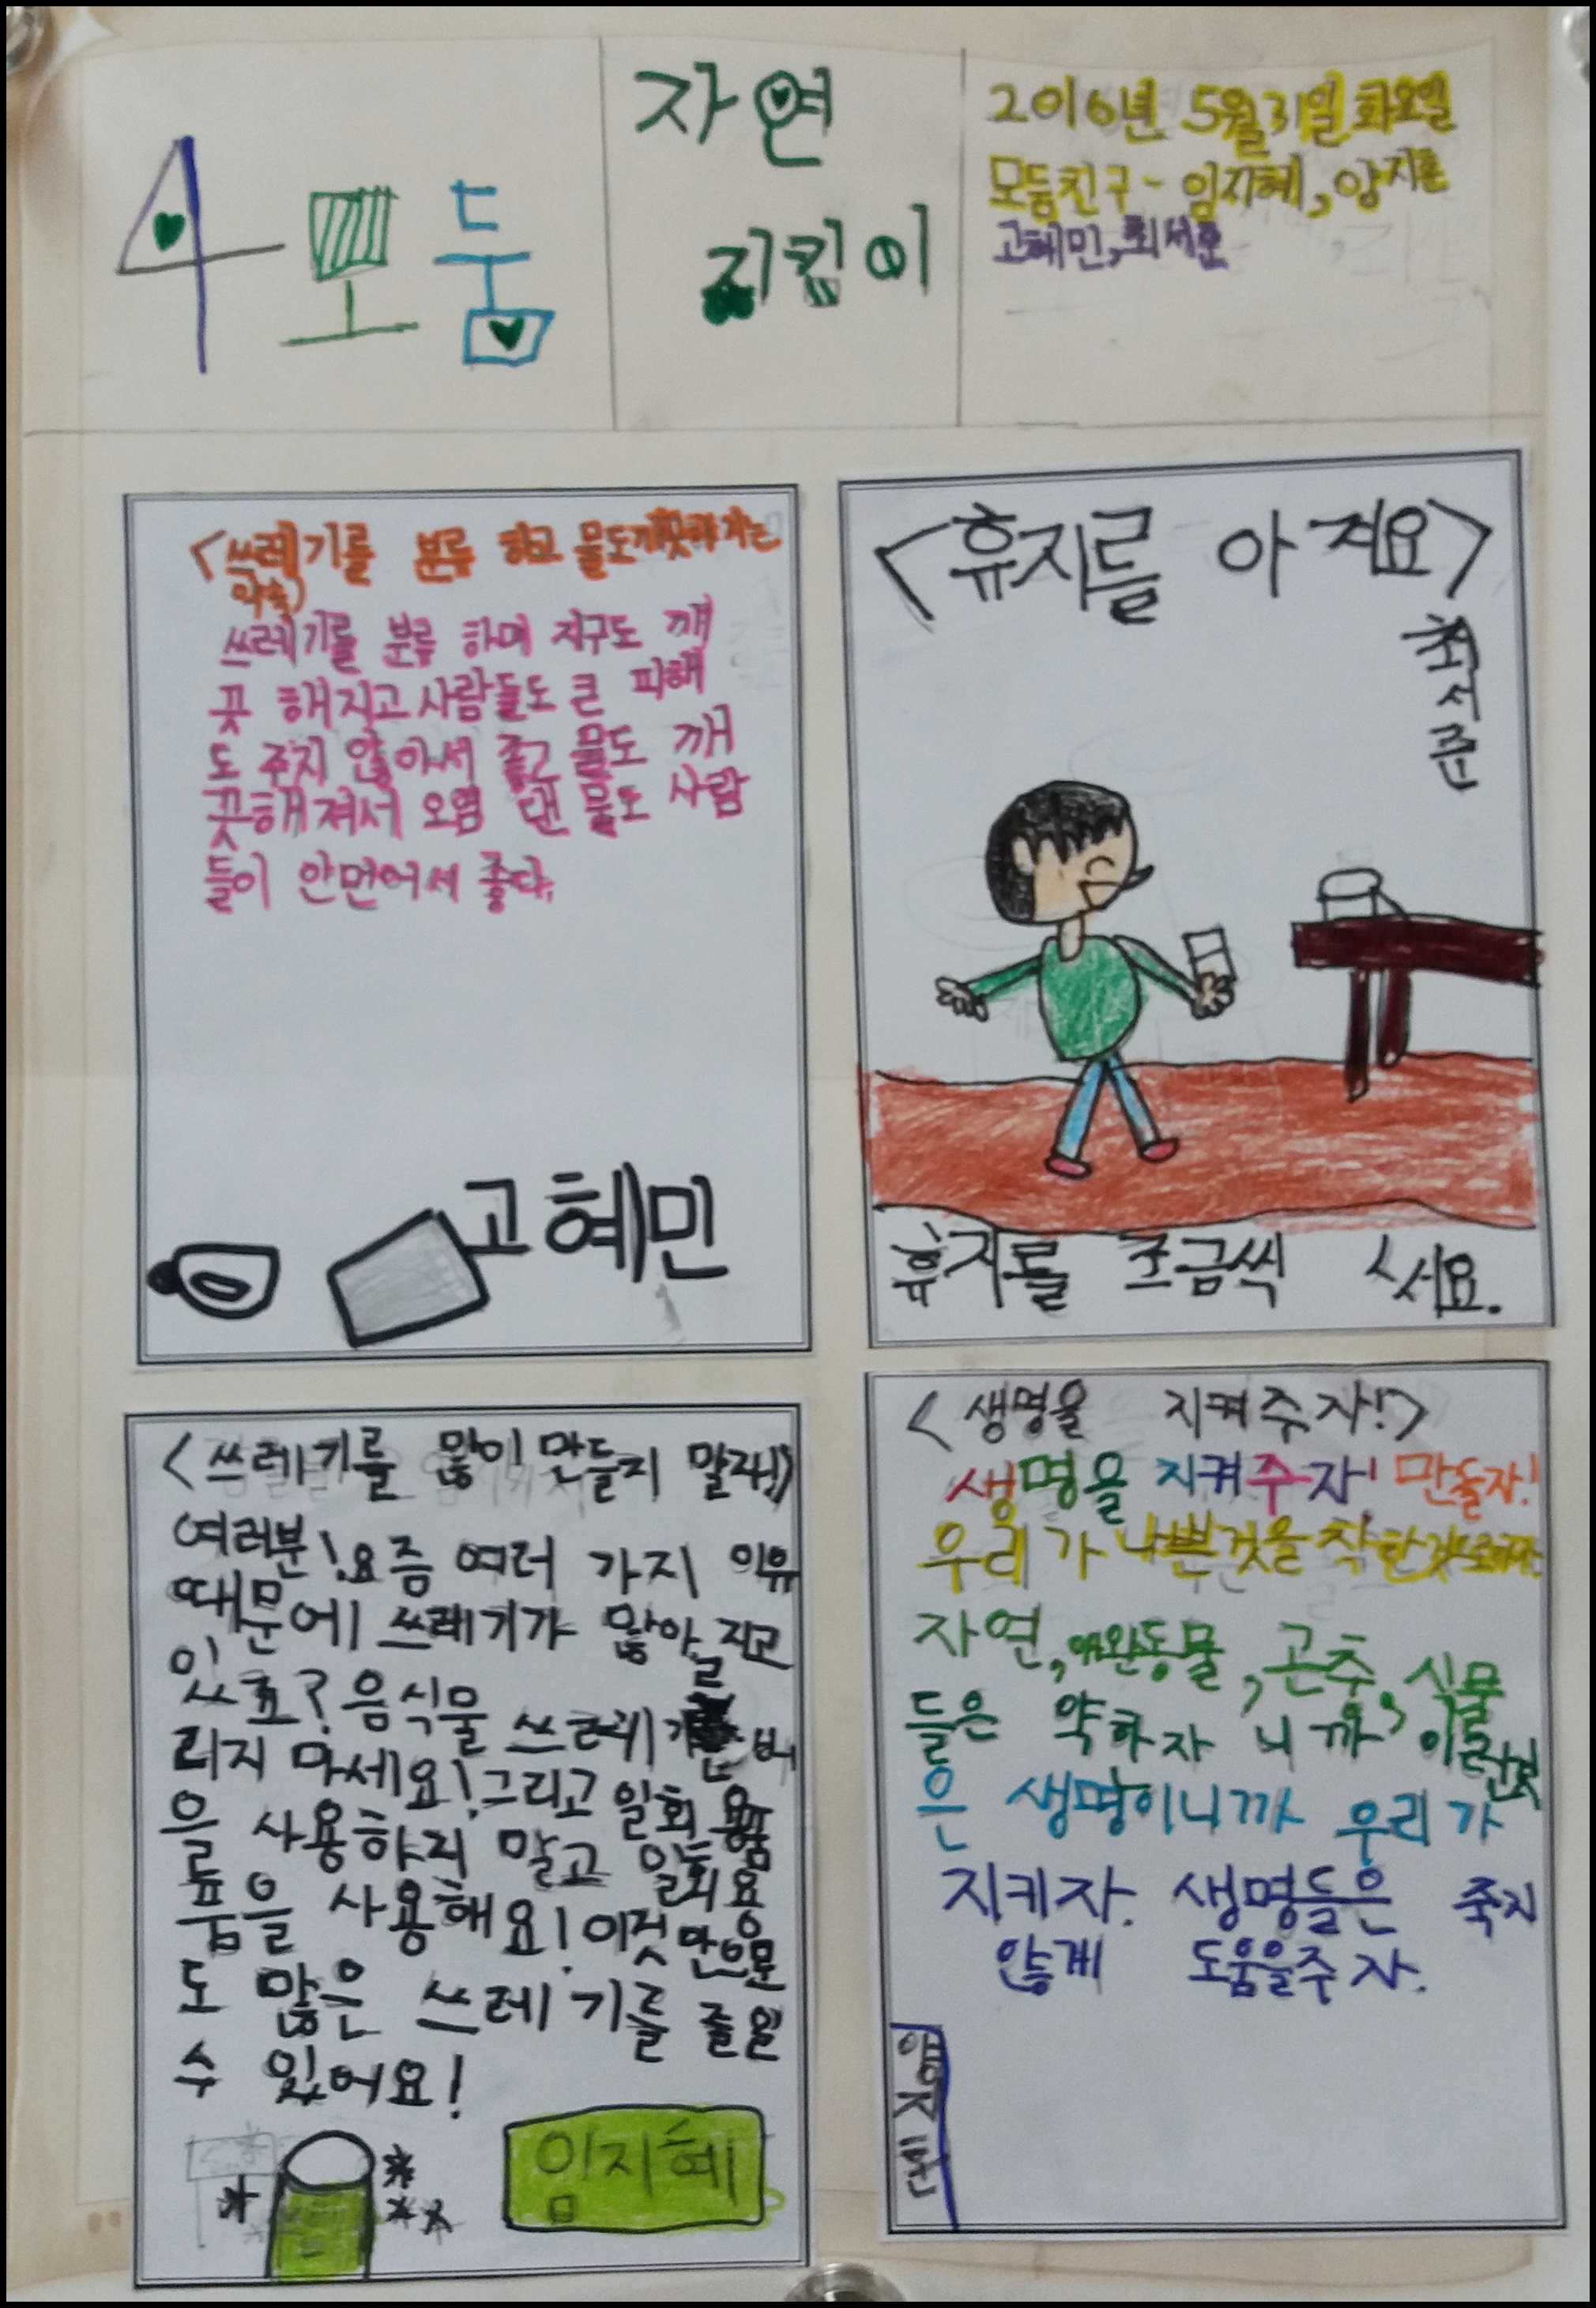 4모둠
자연
지킴이
2016년 5월31일화요일
모둠친구- 임지혜, 양지훈
고혜민, 최서준
<쓰레기를 분류 하고 물도깨끗해지는
약속>
쓰레기를 분류 하며 지구도 깨
끗 해지고 사람들도 큰 피해
도 주지 않아서 좋고 물도 깨
끗해져서 오염 댄 물도 사람
들이 안먼어서 좋다.
고혜민
<휴지를 아껴요>
최서준
휴지를 조금씩 쓰세요.
<쓰레기를 많이 만들지 말자!>
여러분! 요즘 여러 가지 이유
때문에 쓰레기가 많아 지고
있죠? 음식물 쓰레기 버
리지 마세요! 그리고 일회용품
을 사용하지 말고 일회용
품을 사용해요! 이것 만으로
도 많은 쓰레기를 줄일
수 있어요!
임지혜
<생명을 지켜주자!>
생명을 지켜주자! 만들자!
우리가 나쁜것을 착한것으로
자연, 애완동물, 곤충, 식물
들은 약하자 니까, 이런것
은 생명이니까 우리가
지키자. 생명들은 죽지
않게 도움을주자.
양지훈